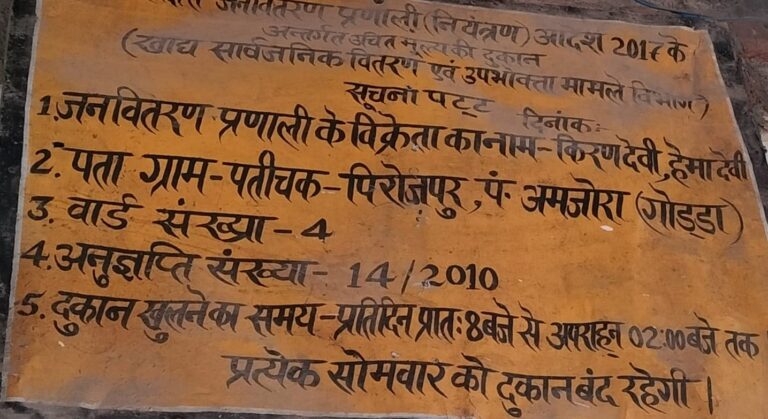 जनवितरण प्रणाली (नियंत्रण) आदेश 2018 के
अन्तर्गत उचित मूल्य की दुकान
(खाद्य सार्वजनिक वितरण एवं उपभोक्ता मामले विभाग)
सूचना पट्ट दिनांक:
1. जनवितरण प्रणाली के विक्रेता का नाम - किरण देवी, हेमा देवी
2. पता ग्राम - पतीचक - पिरोजपुर, पं. अमजोरा (गोड्डा)
3. वार्ड संख्या - 4
4. अनुज्ञप्ति संख्या - 14/2010
5. दुकान खुलने का समय - प्रतिदिन प्रातः 8 बजे से अपराहन् 02:00 बजे तक
प्रत्येक सोमवार को दुकान बंद रहेगी।